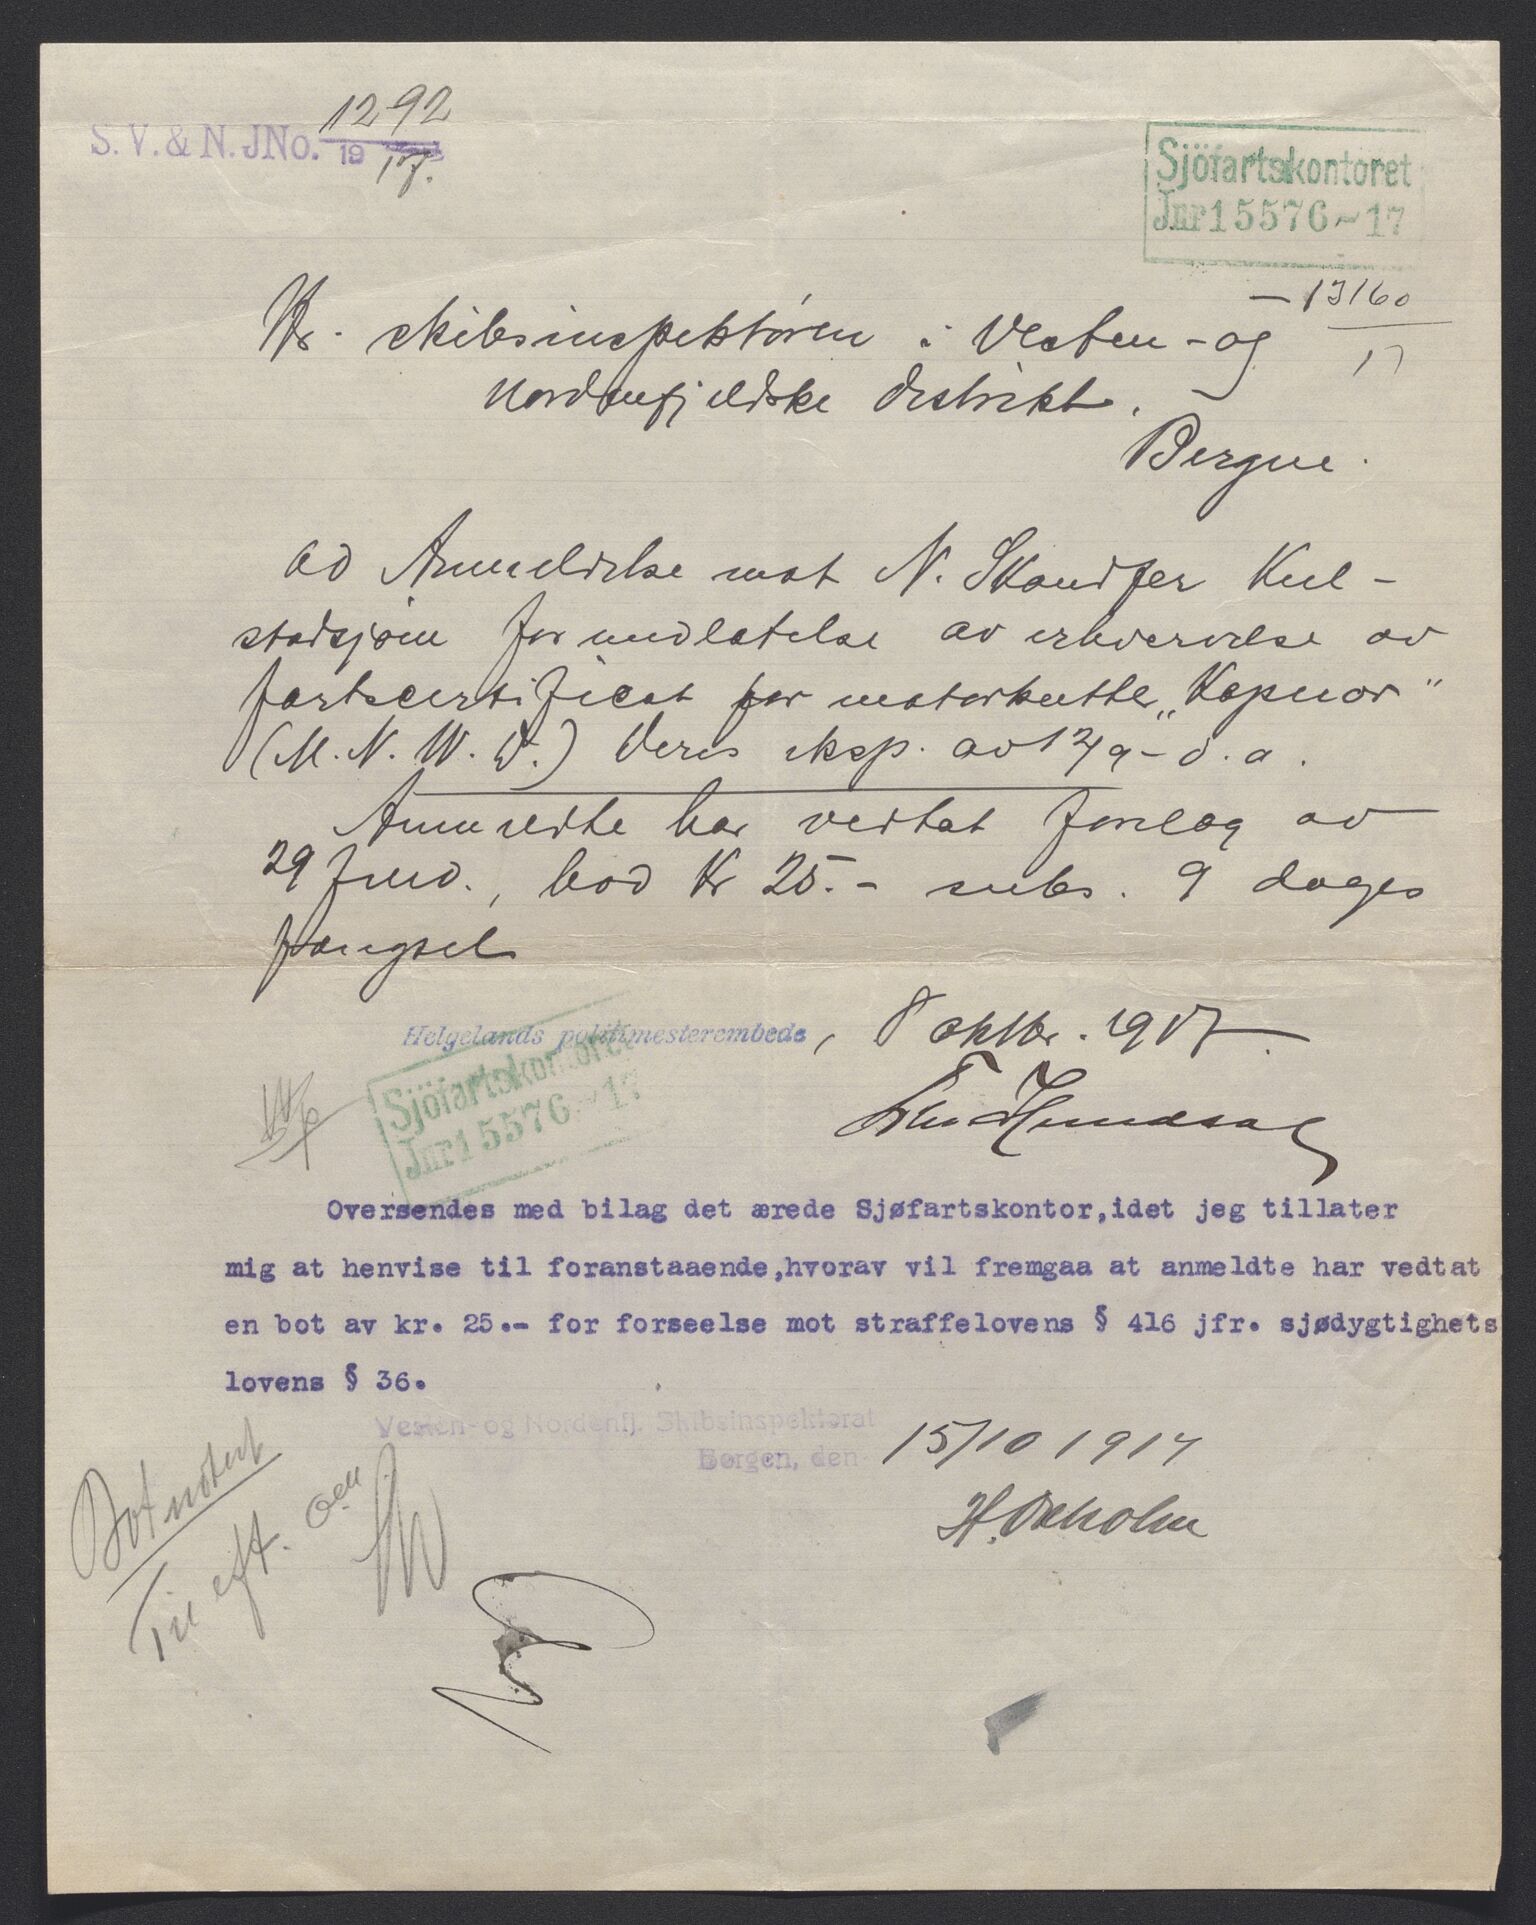 S. V. & N. JNo. 1292
19 17.
Sjöfartskontoret
Jnr 15576-17
- 13160
17
Hr. skibsinspektøren i Vesten- og
Nordenfjeldske distrikt.
Bergen.
ad Anmeldelse mot N. Skandfer Kul-
stadsjøen for undlatelse av erhvervelse av
fartscertificat for motorkutter "Kapnor"
(M. N. W. D.) Deres eksp. av 12/9 - d. a.
Anmeldte har vedtat forelæg av
29 f. md., bod Kr 25.- subs. 9 dages
fængsel
Helgelands politimesterembede, 8 oktbr. 1917.
Sjöfartskontoret
Jnr 15576-17
Oversendes med bilag det ærede Sjøfartskontor,idet jeg tillater
mig at henvise til foranstaaende,hvorav vil fremgaa at anmeldte har vedtat
en bot av kr. 25.- for forseelse mot straffelovens § 416 jfr. sjødygtighets
lovens § 36.
Vesten- og Nordenfj. Skibsinspektorat
Bergen, den 15/10 1917
H. Oxholm
Bot notert
Til eft.